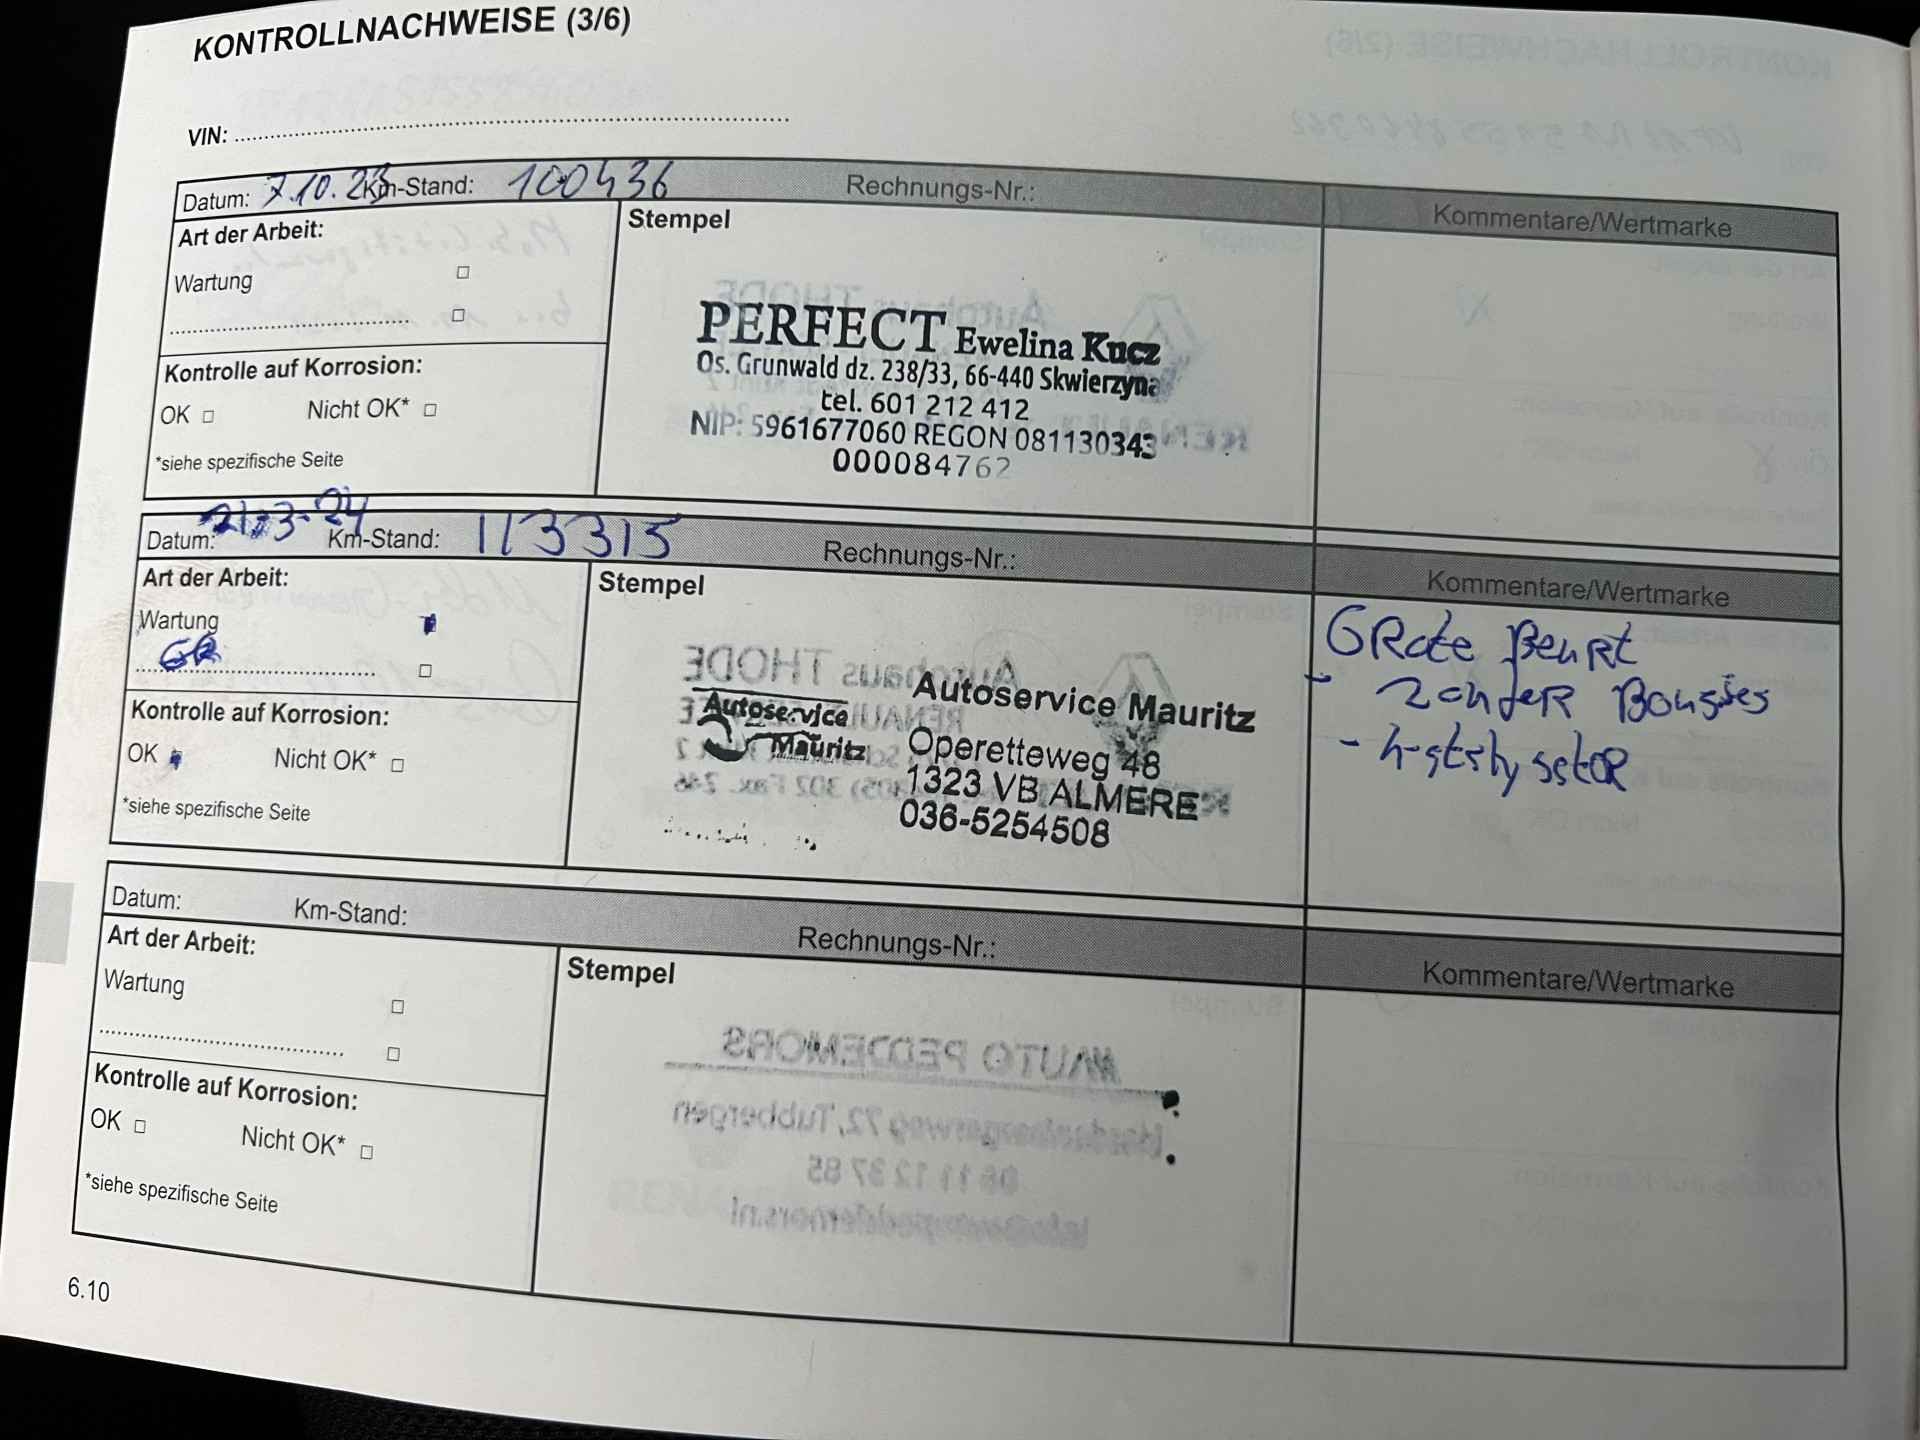 KONTROLLNACHWEISE (3/6)
VIN:
Datum: 7.10.23 Km-Stand: 100436 Rechnungs-Nr.:
Kommentare/Wertmarke
Art der Arbeit:
Wartung
Kontrolle auf Korrosion:
OK Nicht OK*
*siehe spezifische Seite
Stempel
PERFECT Ewelina Kucz
Os. Grunwald dz. 238/33, 66-440 Skwierzyna
tel. 601 212 412
NIP: 5961677060 REGON 081130343
000084762
Datum: 21-3-24 Km-Stand: 113315 Rechnungs-Nr.:
Kommentare/Wertmarke
Art der Arbeit:
Wartung
GR
Kontrolle auf Korrosion:
OK Nicht OK*
*siehe spezifische Seite
Stempel
Autoservice
Mauritz
Autoservice Mauritz
Operetteweg 48
1323 VB ALMERE
036-5254508
GRote BeuRt
- zondeR Bougies
Datum: Km-Stand: Rechnungs-Nr.:
Kommentare/Wertmarke
Art der Arbeit:
Wartung
Kontrolle auf Korrosion:
OK Nicht OK*
*siehe spezifische Seite
Stempel
6.10